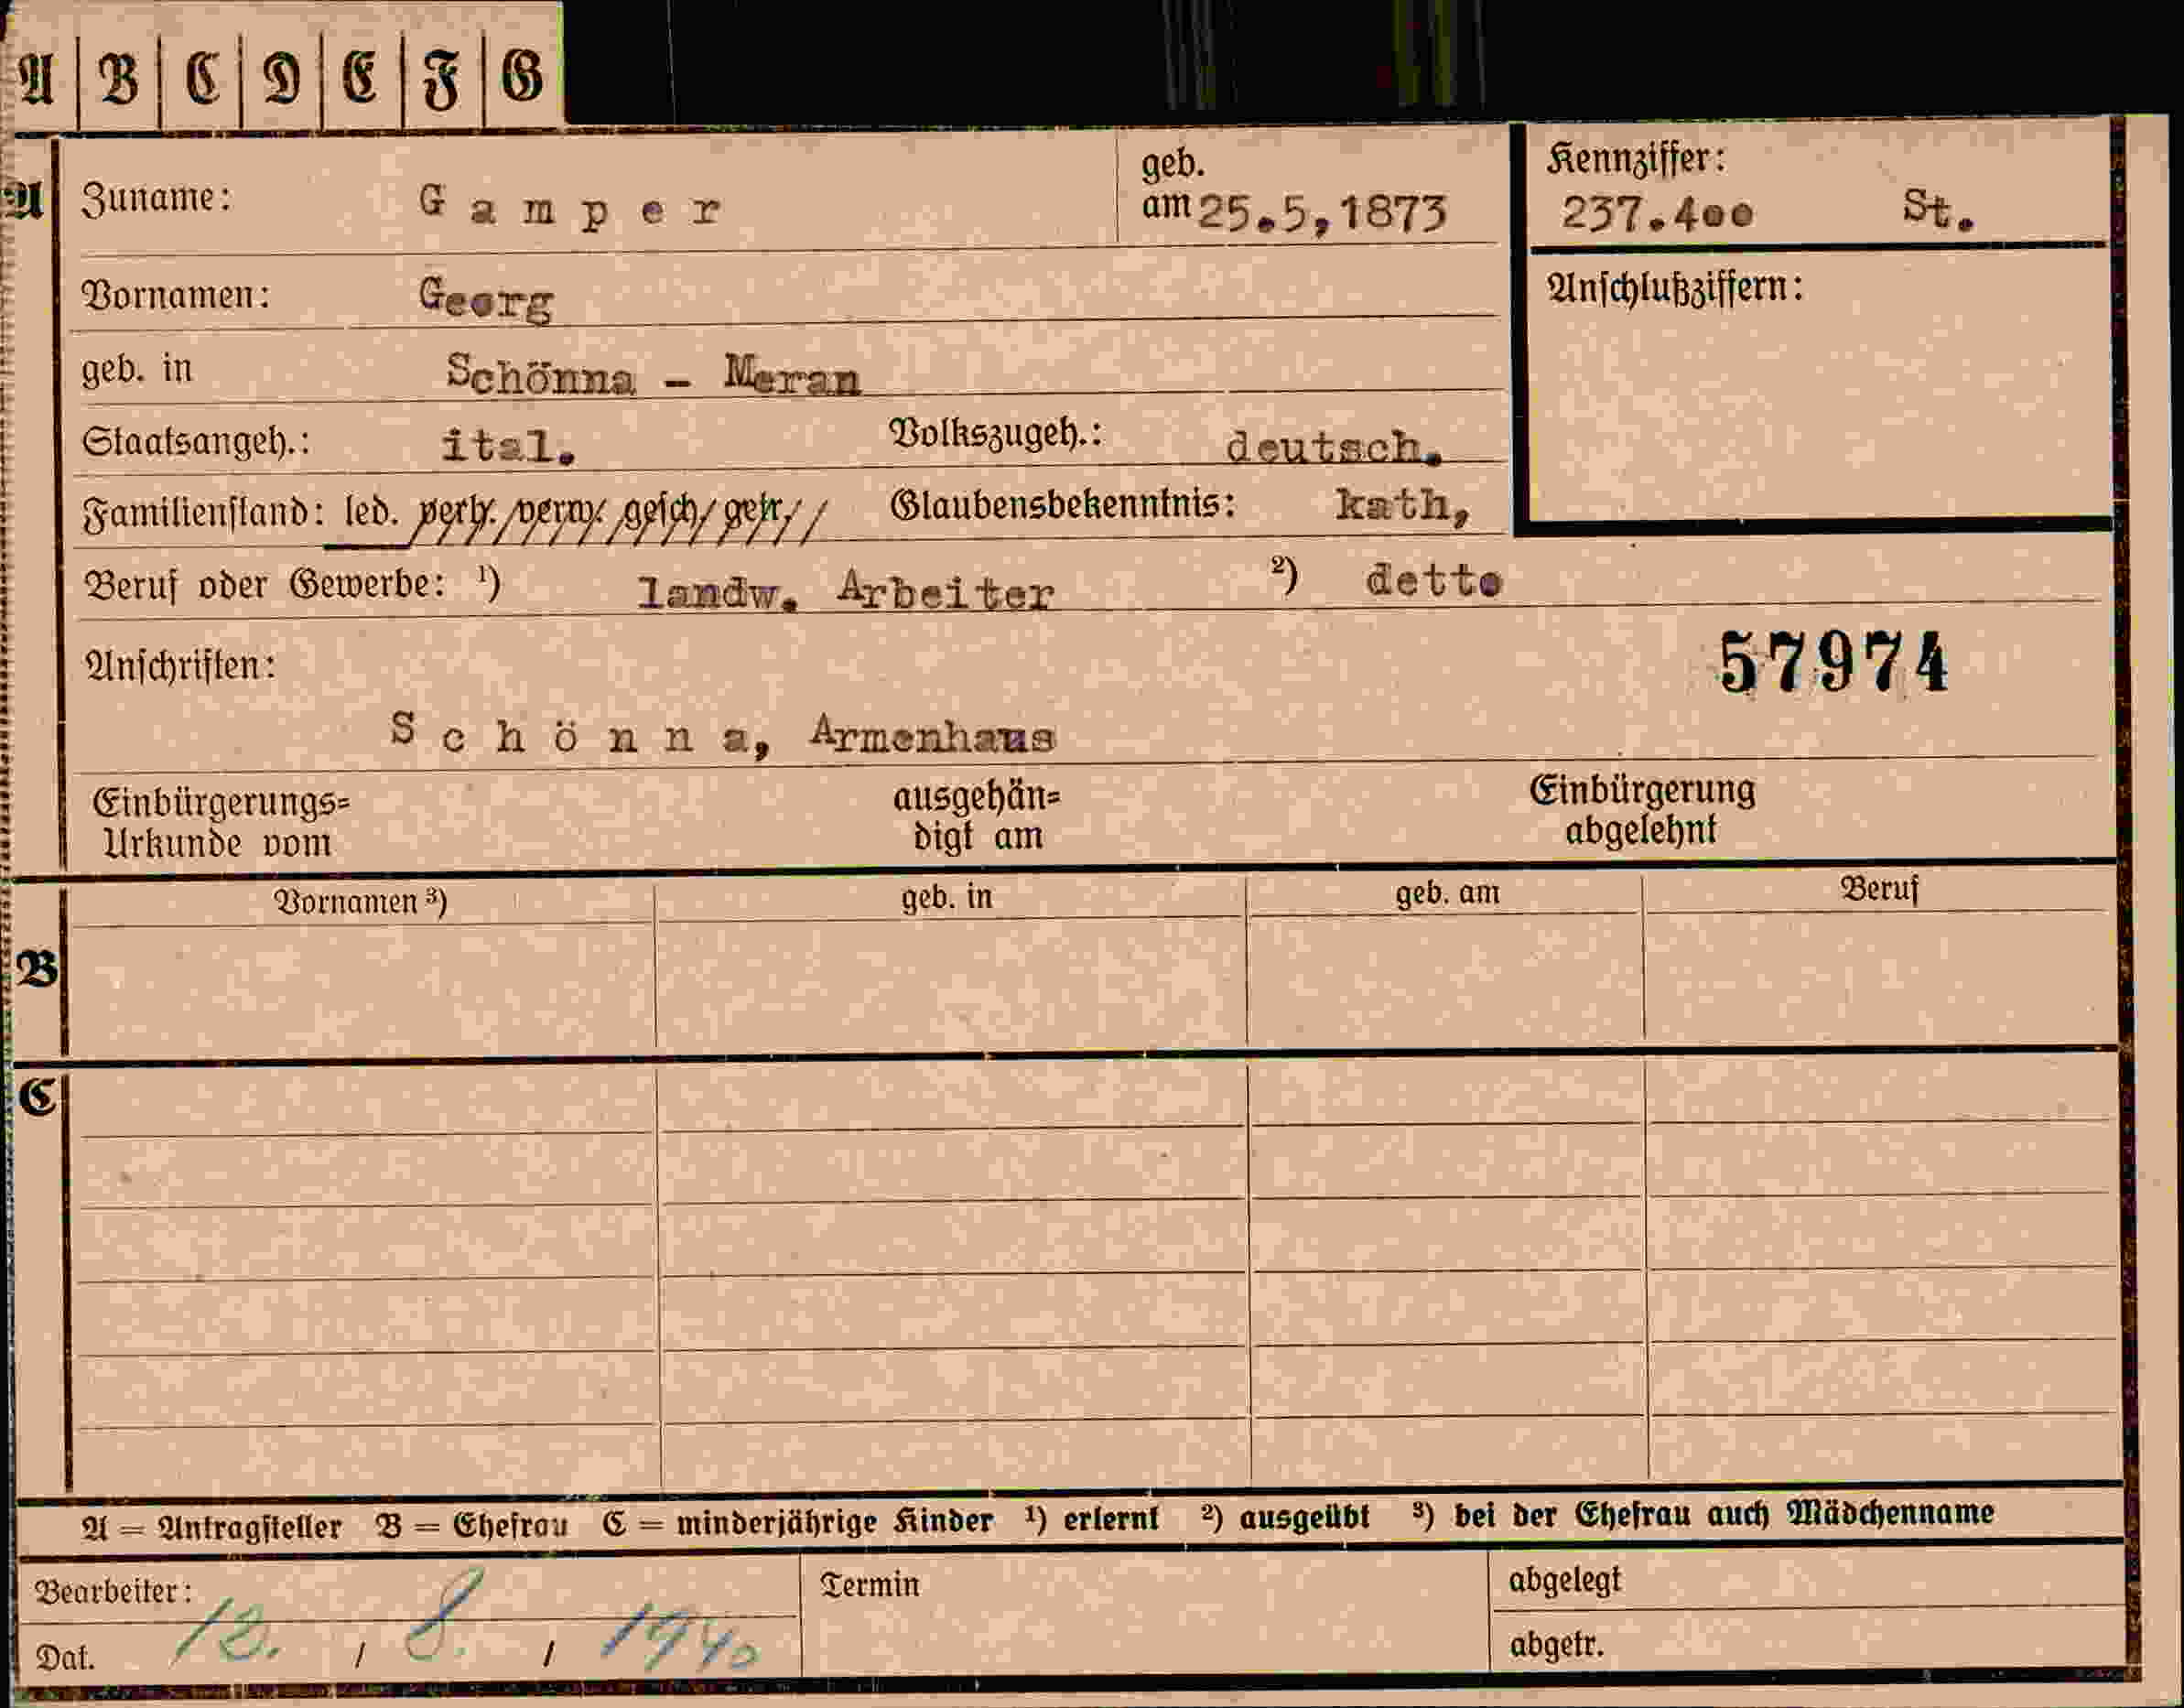 A B C D E F G
A Zuname: Gamper geb. am 25.5,1873 Kennziffer: 237.400 St.
Vornamen: Georg Anschlußziffern:
geb. in Schönna - Meran
Staatsangeh.: ital. Volkszugeh.: deutsch.
Familienstand: led. verh. verw. gesch. getr. Glaubensbekenntnis: kath,
Beruf oder Gewerbe: ¹) landw. Arbeiter ²) detto
Anschriften: 57974
Schönna, Armenhaus
Einbürgerungs= ausgehän= Einbürgerung
Urkunde vom digt am abgelehnt
Vornamen ³) geb. in geb. am Beruf
B
C
A = Antragsteller B = Ehefrau C = minderjährige Kinder ¹) erlernt ²) ausgeübt ³) bei der Ehefrau auch Mädchenname
Bearbeiter: Termin abgelegt
Dat. 12. / 8. / 1940 abgetr.